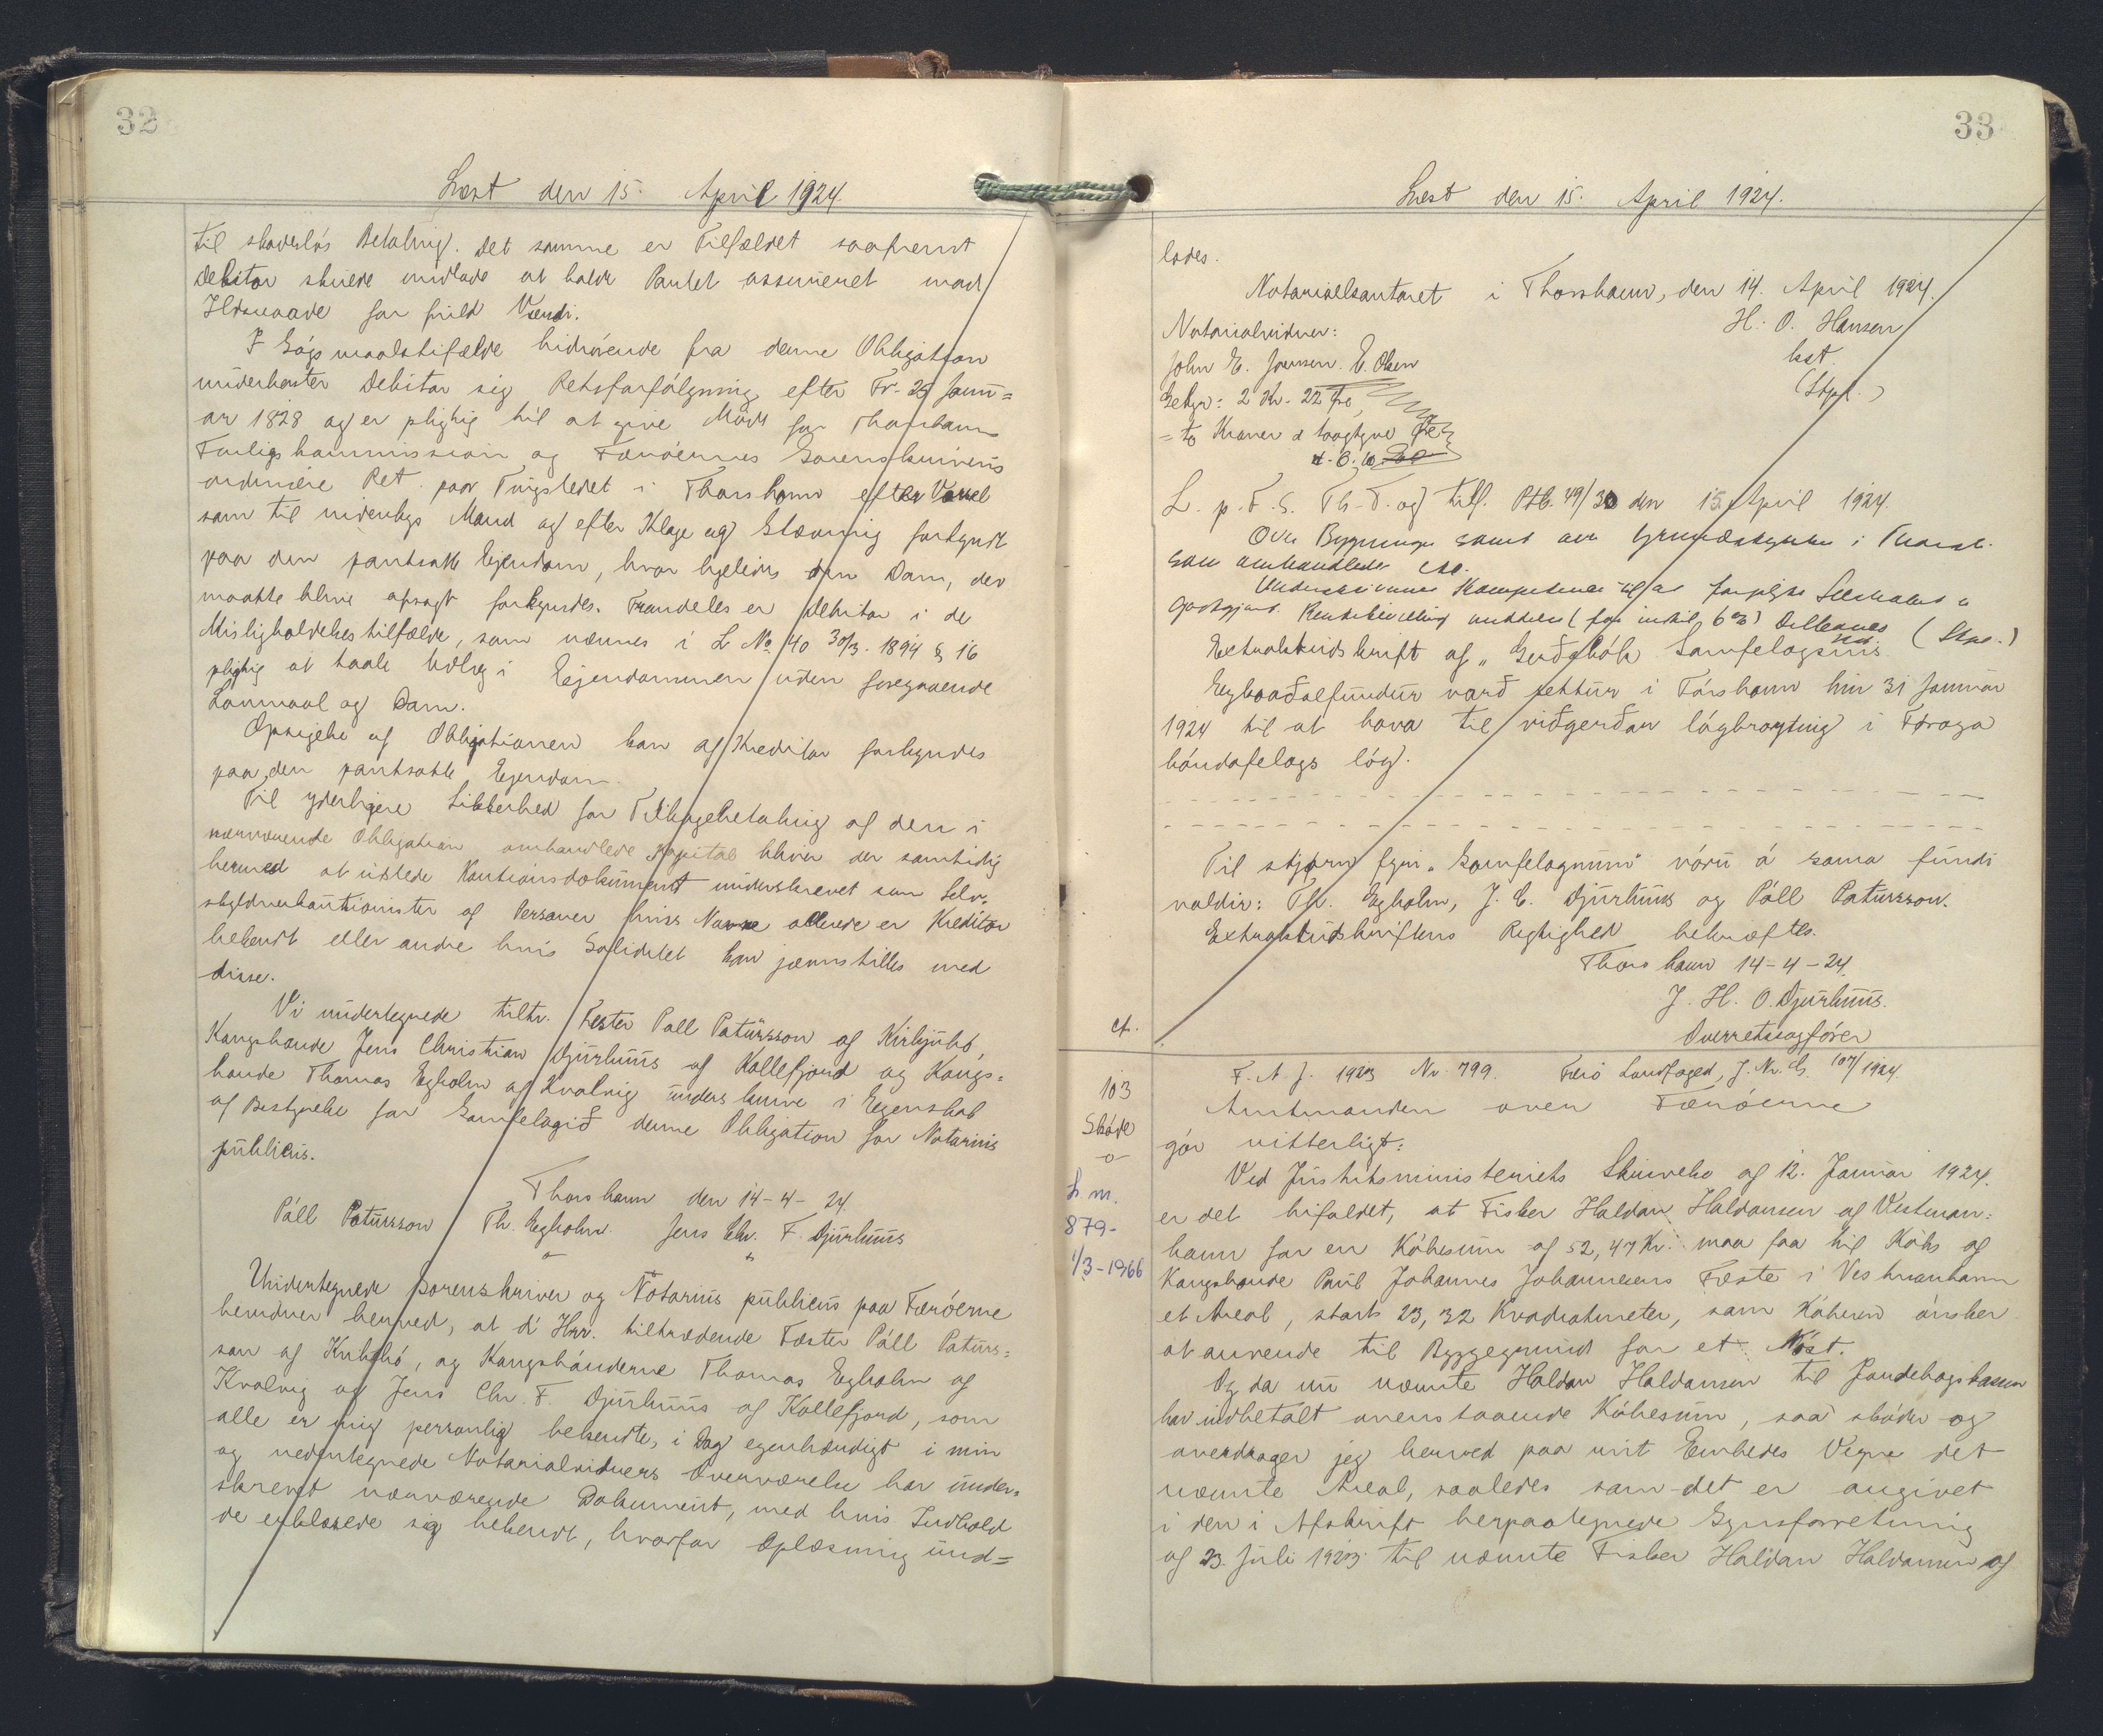 32
Læst den 15. April 1924.
til skadesløs Betaling. Det samme er Tilfældet saafremt
Debitor skulde undlade at holde Pantet assureret mod
Ildsvaade for fuld Værdi.
I Søgsmaalstilfælde hidrørende fra denne Obligation
underkaster Debitor sig Retsforfølgning efter Fr. 25 Janu=
ar 1828 og er pligtig til at give Møde for Thorshavns
Forligskommission og Færøernes Sorenskriveris
ordinære Ret paa Tingstedet i Thorshavn efter Varsel
som til indenbys Mand og efter Klage og Stævning forkyndt
paa den pantsatte Ejendom, hvor ligeledes den Dom, der
maatte blive afsagt forkyndes. Fremdeles er Debitor i de
Misligholdelsestilfælde, som nævnes i L No 40 30/3. 1894 § 16
pligtig at taale Udlæg i Ejendommen uden foregaaende
Lovmaal og Dom.
Opsigelse af Obligationen kan af Kreditor forkyndes
paa den pantsatte Ejendom.
Til yderligere Sikkerhed for Tilbagebetaling af den i
nærværende Obligation omhandlede Kapital bliver der samtidig
hermed at udstede Kautionsdokument underskrevet som Selv-
skyldnerkautionister af Personer hvis Navne allerede er Kreditor
bekendt eller andre hvis Soliditet kan jævnstilles med
disse.
Vi undertegnede tiltr. Fæster Páll Patursson af Kirkjubø,
Kongsbonde Jens Christian Djurhuus af Kollefjord og Kongs=
bonde Thomas Egholm af Kvalvig underskrive i Egenskab
af Bestyrelse for Samfelagið denne Obligation for Notarius
publicus.
Thorshavn den 14-4-24
Páll Patursson Th. Egholm. Jens Chr. F. Djurhuus
Undertegnede Sorenskriver og Notarius publicus paa Færøerne
bevidner herved, at d'Hrr. tiltrædende Fæster Páll Paturs=
son af Kirkjubø, og Kongsbønderne Thomas Egholm af
Kvalvig og Jens Chr. F. Djurhuus af Kollefjord, som
alle er mig personlig bekendte, i Dag egenhændigt i min
og nedentegnede Notarialvidners Overværelse har under=
skrevet nærværende Dokument, med hvis Indhold
de erklærede sig bekendt, hvorfor Oplæsning und=
33
Læst den 15. April 1924.
lodes.
Notarialkontoret i Thorshavn, den 14. April 1924.
H. O. Hansen
kst.
(Stpl.)
Notarialvidner:
John E. Joensen. E. Olsen
Gebyr: 2 Kr. 22 Øre
= to Kroner & toogtyve Øre
L. p. F. S. Th. T. og tilf. Ptb. 49/30 den 15 April 1924.
Over Bygninger samt Grundstykke i Thorsh.
som omhandlede
Underskrivernes Kompetence til at forpligte Selskabet er
godtgjort. Rentebevilling
(Stpl.)
Extraktudskrift af „Gerðabók Samfelagsins
Eykaaðalfundur varð settur i Tórshavn hin 31 Januar
1924 til at hava til viðgerðar lógbroyting i Føroya
bóndafelags lóg.
Til stjórn fyri „Samfelagnum" vóru á sama fundi
valdir: Th. Egholm, J. C. Djurhuus og Páll Patursson.
Extraktudskriftens Rigtighed bekræftes.
Thorshavn 14-4-24
J. H. O. Djurhuus.
Overretssagfører
cf.
103
Skøde
L m.
879-
1/3-1966
F. A. J. 1923 Nr. 799. Færø Landfoged, J. Nr. 107/1924.
Amtmanden over Færøerne
gør vitterligt:
Ved Justitsministeriets Skrivelse af 12. Januar 1924.
er det bifaldet, at Fisker Haldan Haldansen af Vestman=
havn for en Købesum af 52,47 Kr. maa faa til Købs af
Kongsbonde Poul Johannes Johannesens Fæste i Vestmanhavn
et Areal, stort 23,32 Kvadratmeter, som Køberen ønsker
at anvende til Byggegrund for et Nøst.
Og da nu nævnte Haldan Haldansen til Jordebogskassen
har indbetalt ovenstaaende Købesum, saa skøder og
overdrager jeg herved paa mit Embedes Vegne det
nævnte Areal, saaledes som det er angivet
i den i Afskrift herpaategnede Synsforretning
af 23. Juli 1923 til nævnte Fisker Haldan Haldansen af